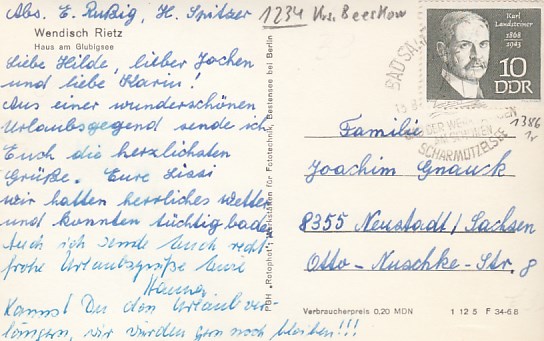 Abs. E. Rußig, H. Spitzer
1234 Krs. Beeskow
Wendisch Rietz
Haus am Glubigsee
Liebe Hilde, lieber Jochen
und liebe Karin!
Aus einer wunderschönen
Urlaubsgegend sende ich
Euch die herzlichsten
Grüße. Eure Sissi
Wir hatten herrliches Wetter
und konnten tüchtig baden
Auch ich sende Euch recht
frohe Urlaubsgrüße Eure
Hanna
Kannst Du den Urlaub ver-
längern, wir würden gern noch bleiben!!!
PGH „Rotophot“ Werkstätten für Fototechnik, Bestensee bei Berlin
Karl
Landsteiner
1868
1943
10
DDR
BAD SAAROW
SCHARMÜTZELSEE
1386
Familie
Joachim Gnauck
8355 Neustadt/Sachsen
Otto-Nuschke-Str. 8
Verbraucherpreis 0,20 MDN
1 12 5 F 34-68